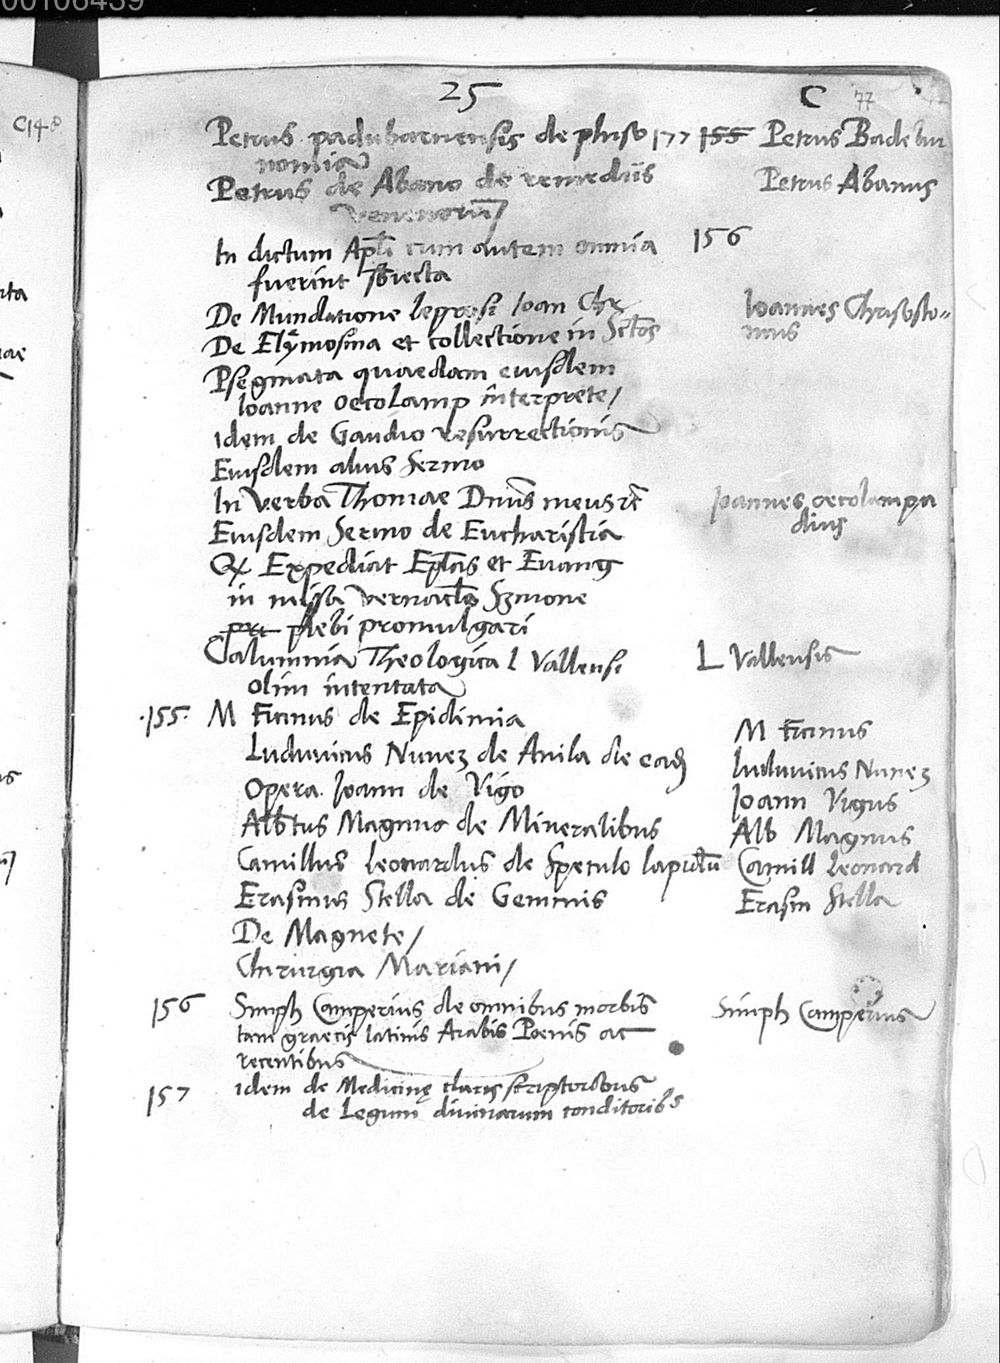 00106439
25 C 77
C148
Petrus padubanensis de phiso 177 155 Petrus Badebun
nomia
Petrus de Abano de remediis Petrus Abanus
venenorū
In dictum Apli cum autem omnia 156
fuerint sbiecta
De Mundatione leprosi Ioan Chr Ioannes Chrisosto=
mus
De Elymosina et collectione in Sctos
Psegmata quaedam eiusdem
Ioanne oecolamp interprete/
idem de Gaudio resurrectionis
Eiusdem alius sermo
In verba Thomae Dnus meus et Ioannes oecolampa
dius
Eiusdem sermo de Eucharistia
Q Expediat Eplas et Euang
in missa vernaclo Sermone
plebi promulgari
Calumnia Theologica L Vallensi L Vallensis
olim intentata
·155· M Ficinus de Epidimia M Ficinus
Luduuicus Nunez de Auila de eadē Luduuicus Nunez
Opera Ioann de Vigo Ioann Vigus
Albtus Magnus de Mineralibus Alb Magnus
Camillus Leonardus de Speculo lapidū Camill Leonard
Erasmus Stella de Gemmis Erasm Stella
De Magnete/
Chirurgia Mariani/
156 Simph Camperius de omnibus morbis Simph Camperius
tam graecis latinis Arabis Poenis ac
recentibus
157 idem de Medicinę claris scriptoribus
de Legum diuinarum conditoribs